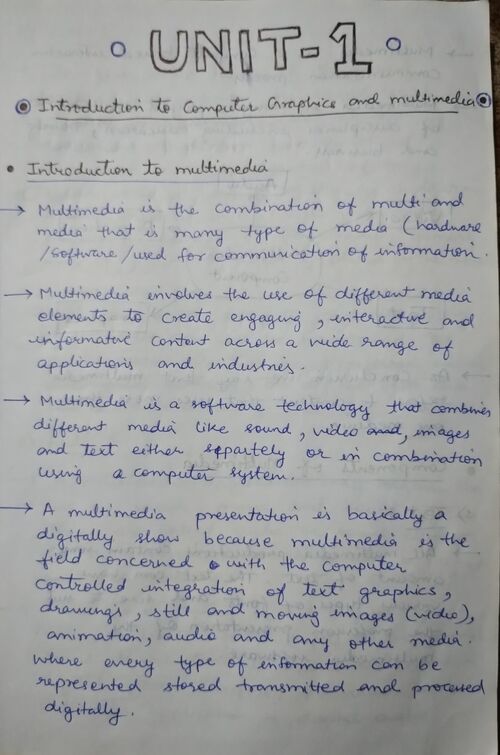 UNIT-1
Introduction to Computer Graphics and multimedia
• Introduction to multimedia
→ Multimedia is the combination of multi and
media that is many type of media (hardware
/software/used for communication of information.
→ Multimedia involves the use of different media
elements to create engaging, interactive and
informative content across a wide range of
applications and industries.
→ Multimedia is a software technology that combines
different media like sound, video and, images
and text either spartely or in combination
using a computer system.
→ A multimedia presentation is basically a
digitally show because multimedia is the
field concerned with the computer
controlled integration of text graphics,
drawings, still and moving images (video),
animation, audio and any other media.
where every type of information can be
represented stored transmitted and processed
digitally.